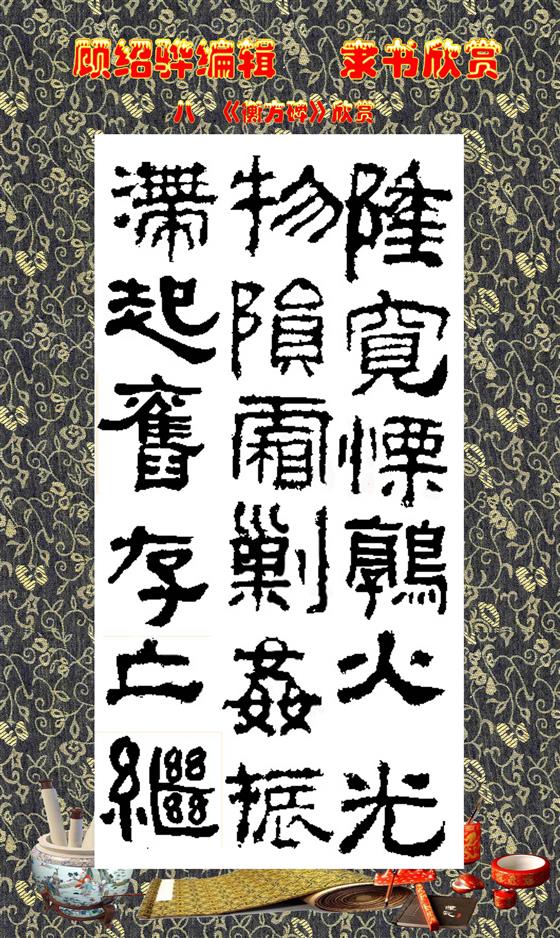 顾绍骅编辑 隶书欣赏
八 《衡方碑》欣赏
隆寬慄鶉火光
物隕霜剿姦振
滯起舊存亡繼